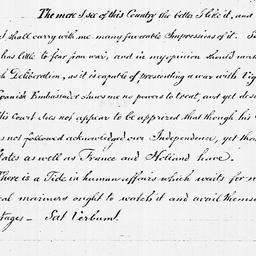 The more I see of this Country the better I like it, and
I shall carry with me many favorable Impressions of it.
has little to fear from war, and in my opinion should
Deliberation, as it is capable of presenting a war with
Spanish Embassador shews me no powers to treat, and yet
His Court does not appear to be apprized that though his
not followed acknowledged our Independence, yet
States as well as France and Holland have.
There is a Tide in human affairs which waits for
mariners ought to watch it and avail
Sat Verbum.